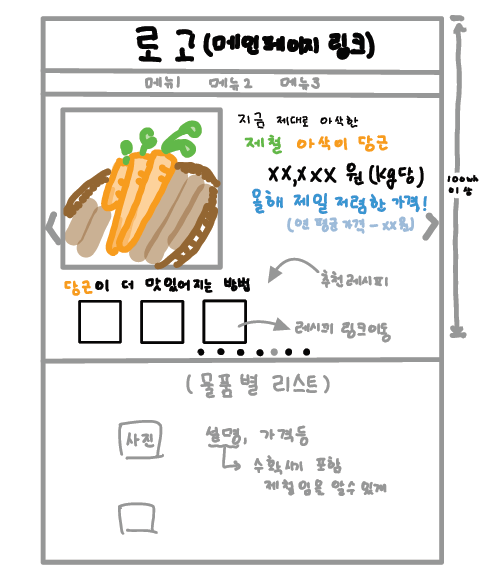 로고 (메인페이지 링크)
메뉴1 메뉴2 메뉴3
지금 제대로 아삭한
제철 아삭이 당근
XX,XXX 원 (kg당)
올해 제일 저렴한 가격!
(연 평균 가격 - XX원)
100vh
이상
당근이 더 맛있어지는 방법
추천레시피
레시피 링크이동
(물품별 리스트)
사진
설명, 가격등
수확시기 포함
제철임을 알수있게